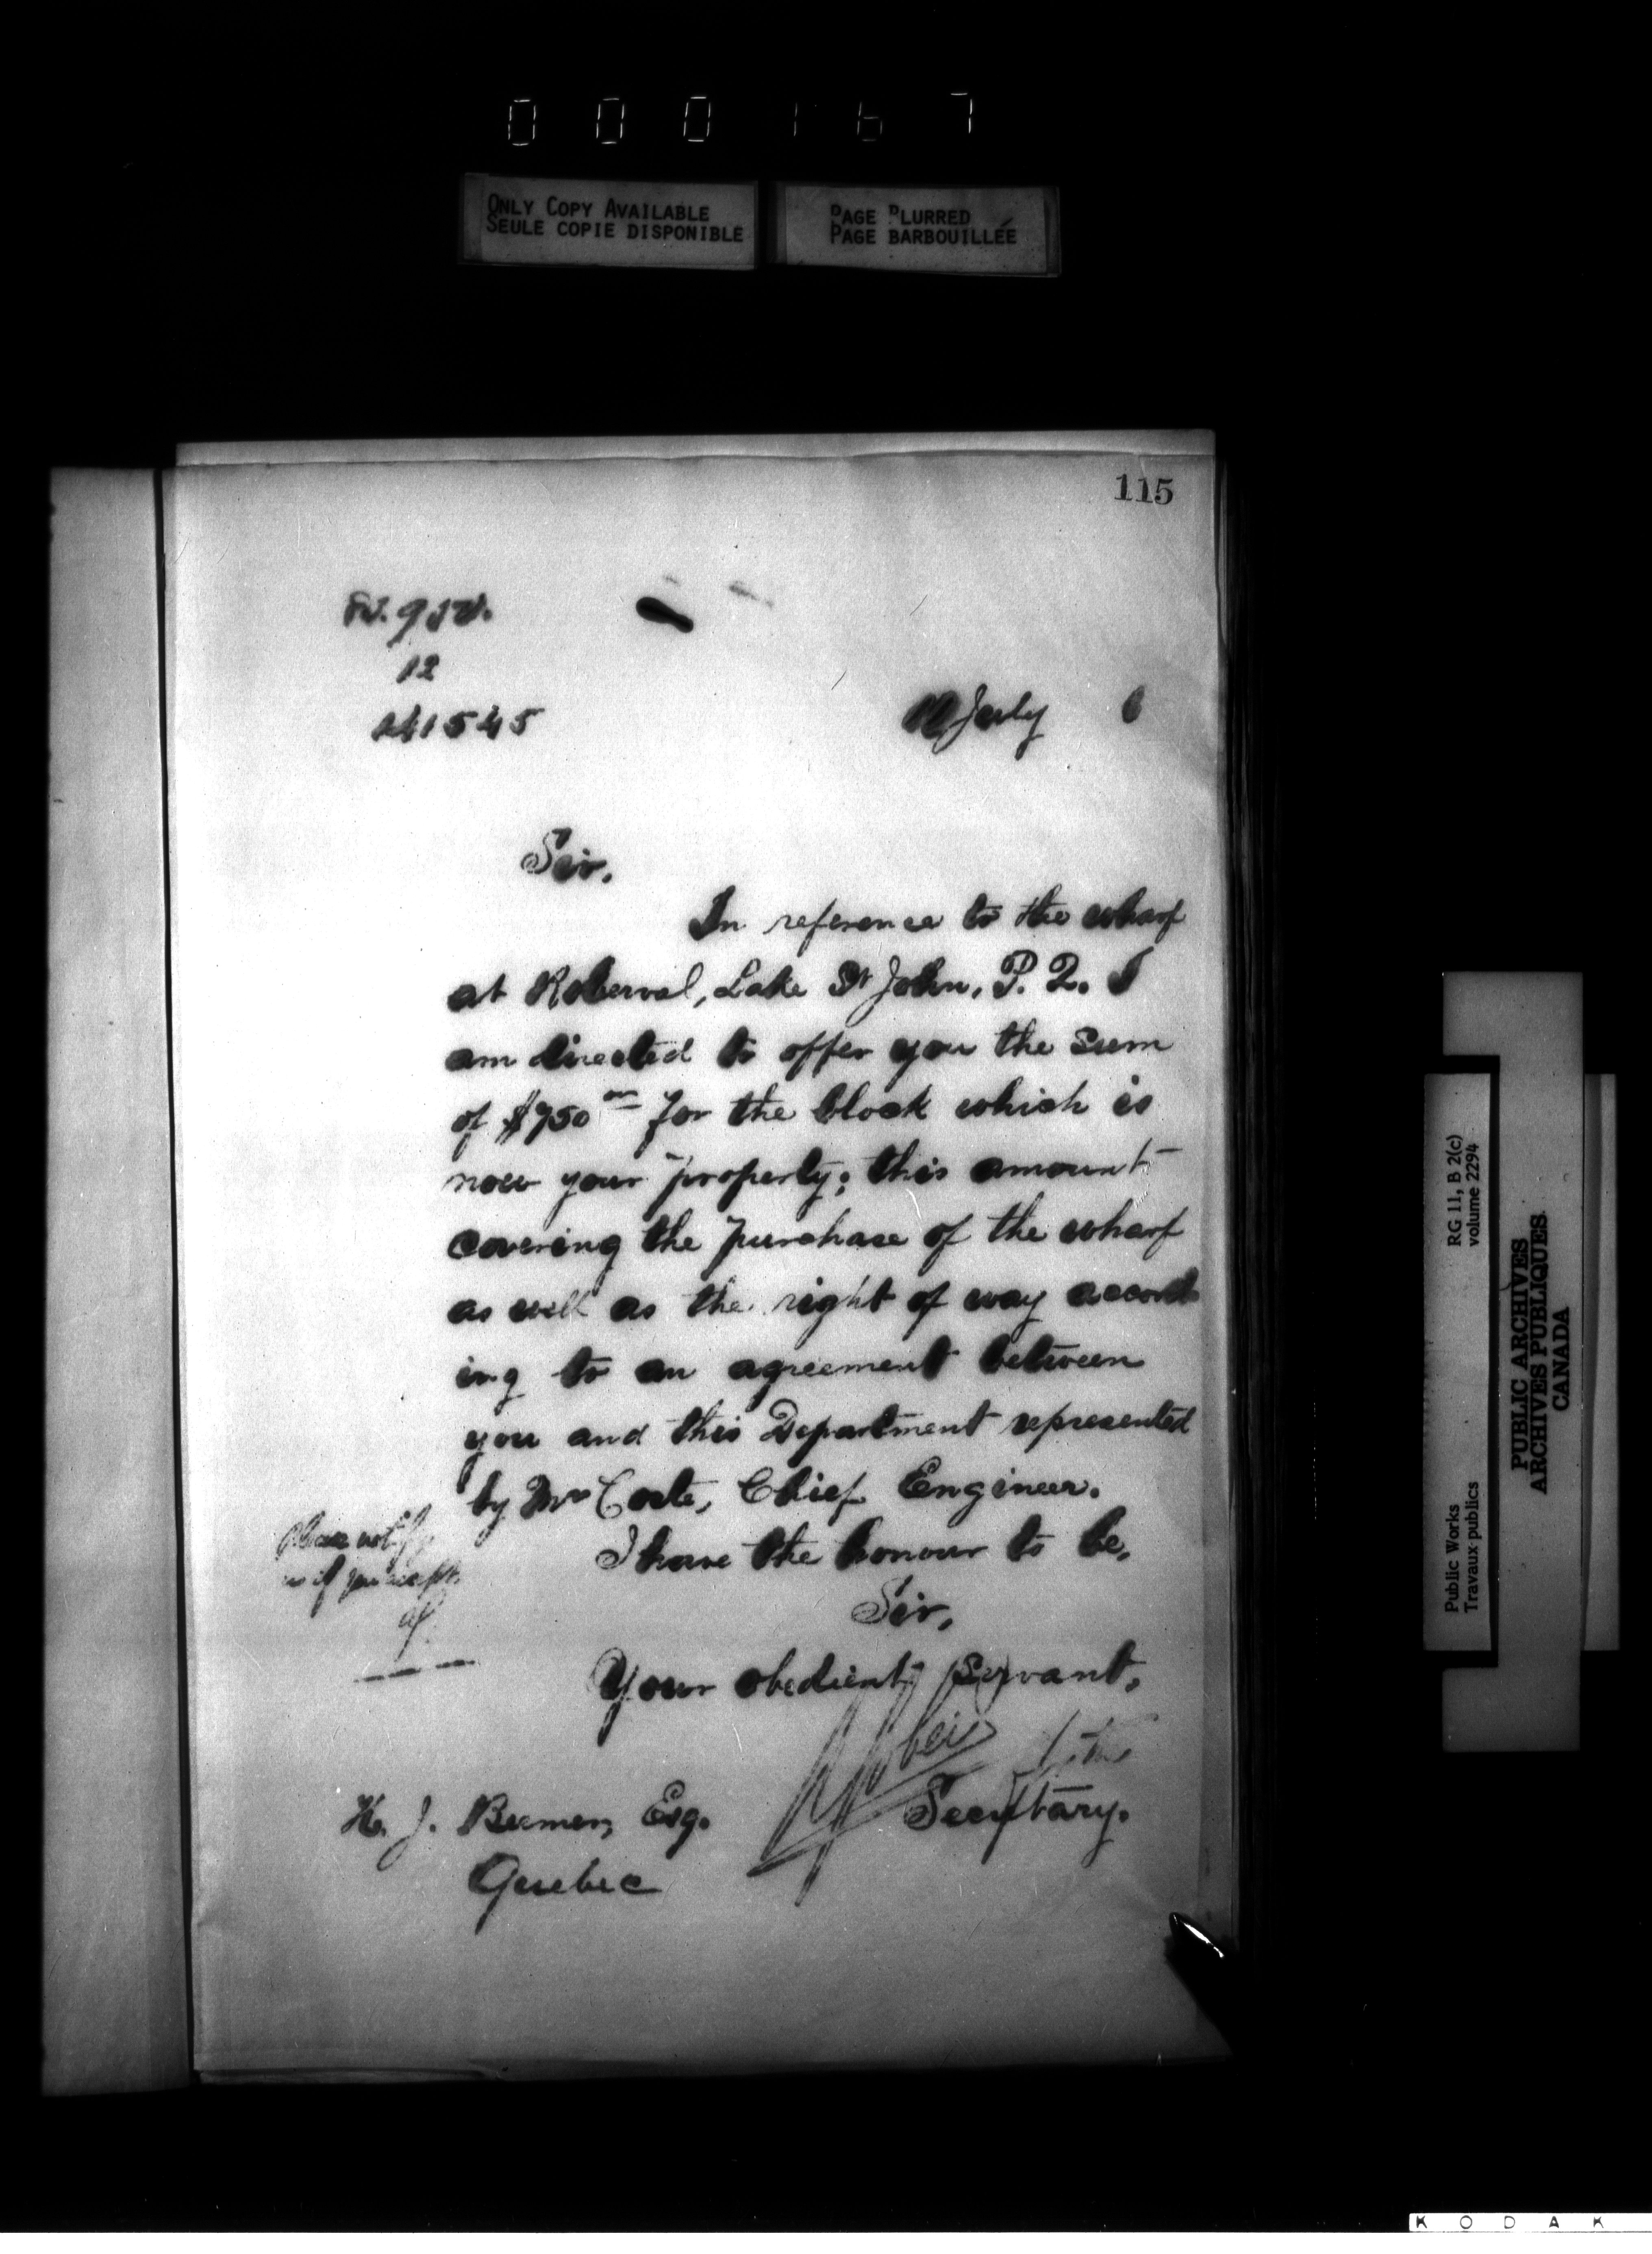 000167
ONLY COPY AVAILABLE
SEULE COPIE DISPONIBLE
PAGE BLURRED
PAGE BARBOUILLÉE
115
12
141545
July 6
Sir,
In reference to the wharf
at Roberval, Lake St John, P. Q. I
am directed to offer you the sum
of $950 00 for the block which is
now your property; this amount
covering the purchase of the wharf
as well as the right of way accord
ing to an agreement between
you and this Department represented
by Mr Coste, Chief Engineer.
Please notify
us if you accept.
I have the honour to be,
Sir,
Your obedient Servant,
Secretary.
H. J. Beemer, Esq.
Quebec
Public Works
Travaux publics
RG 11, B 2(c)
volume 2294
PUBLIC ARCHIVES
ARCHIVES PUBLIQUES
CANADA
KODAK